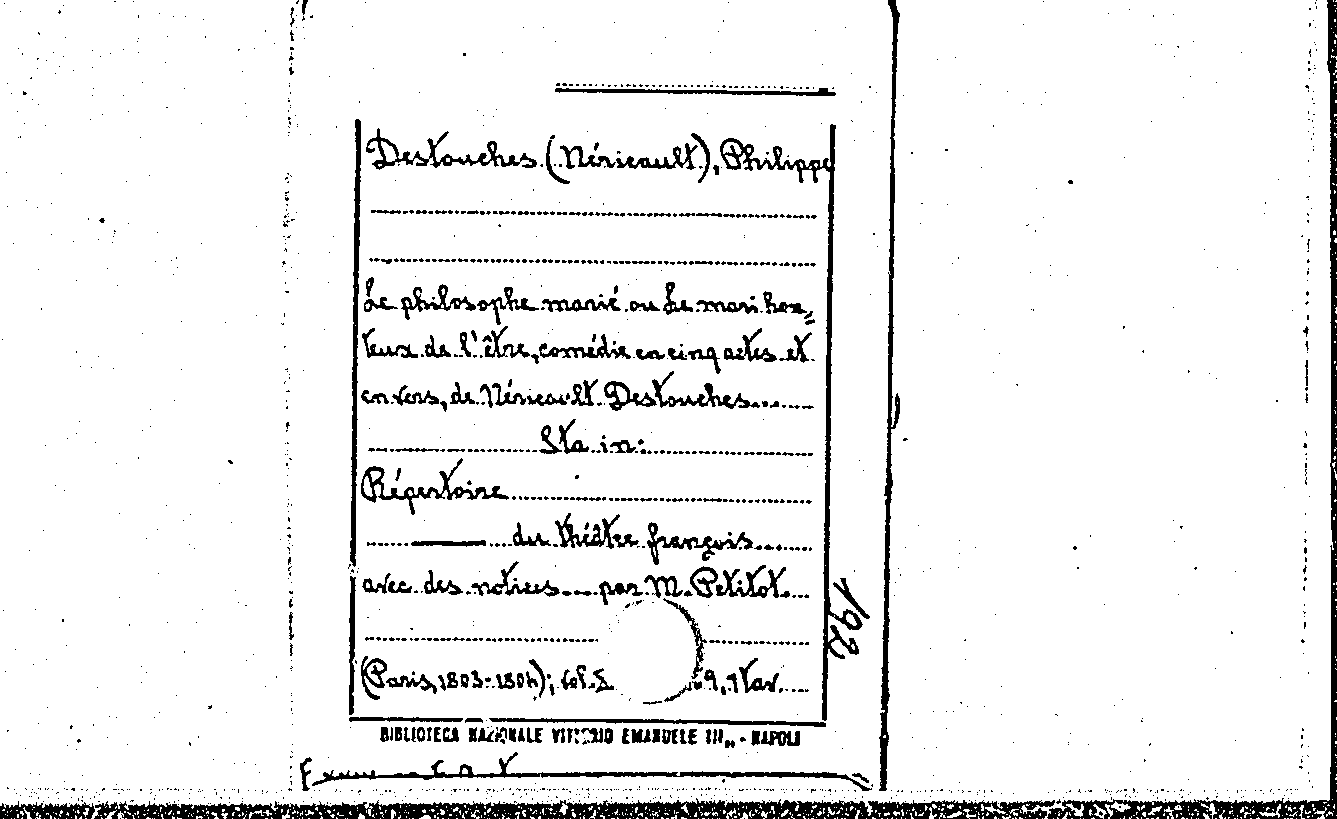 Destouches (Néricault), Philippe
Le philosophe marié ou Le mari hon=
teux de l'être, comédie en cinq actes et
en vers, de Néricault Destouches....
Sta in:
Répertoire
du théâtre françois....
avec des notices.... par M. Petitot....
(Paris, 1803-1804); vol.
9, 1 tav.
192
BIBLIOTECA NAZIONALE VITTORIO EMANUELE III„ - NAPOLI